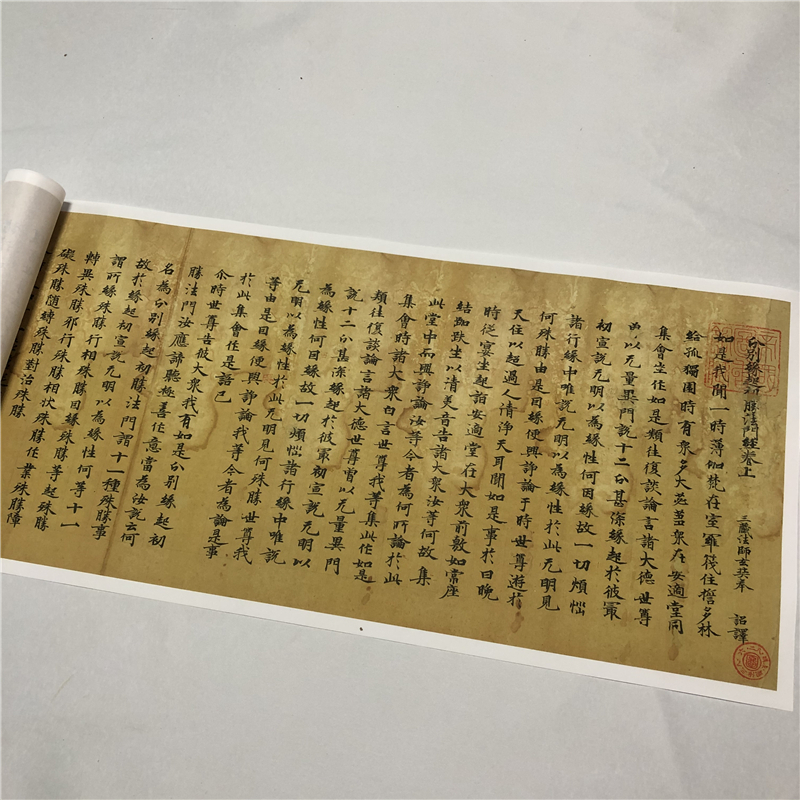 分別緣起初勝法門經卷上
三藏法師玄奘奉 詔譯
如是我聞一時薄伽梵在室羅筏住誓多林
給孤獨園時有衆多大苾蒭衆在安適堂同
集會坐作如是類往復談論言諸大德世尊
曲以无量異門說十二分甚深緣起於彼最
初宣說无明以為緣性何因緣故一切煩惱
諸行緣中唯說无明以為緣性於此无明見
何殊勝由是因緣便興諍論于時世尊遊於
天住以超過人清淨天耳聞如是事於日晚
時從宴坐起詣安適堂在大衆前敷如常座
結跏趺坐以清美音告諸大衆汝等何故集
此堂中而興諍論汝等今者為何所論於此
集會時諸大衆白言世尊我等集此作如是
類往復談論言諸大德世尊曾以无量異門
說十二分甚深緣起於彼最初宣說无明以
為緣性何因緣故一切煩惱諸行緣中唯說
无明以為緣性於此无明見何殊勝世尊我
等由是因緣便興諍論我等今者為論是事
於此集會作是語已
尒時世尊告彼大衆我有如是分別緣起初
勝法門汝應諦聽極善作意當為汝說云何
名為分別緣起初勝法門謂十一種殊勝事
故於緣起初宣說无明以為緣性何等十一
謂所緣殊勝行相殊勝因緣殊勝等起殊勝
轉異殊勝邪行殊勝相狀殊勝作業殊勝障
礙殊勝隨縛殊勝對治殊勝